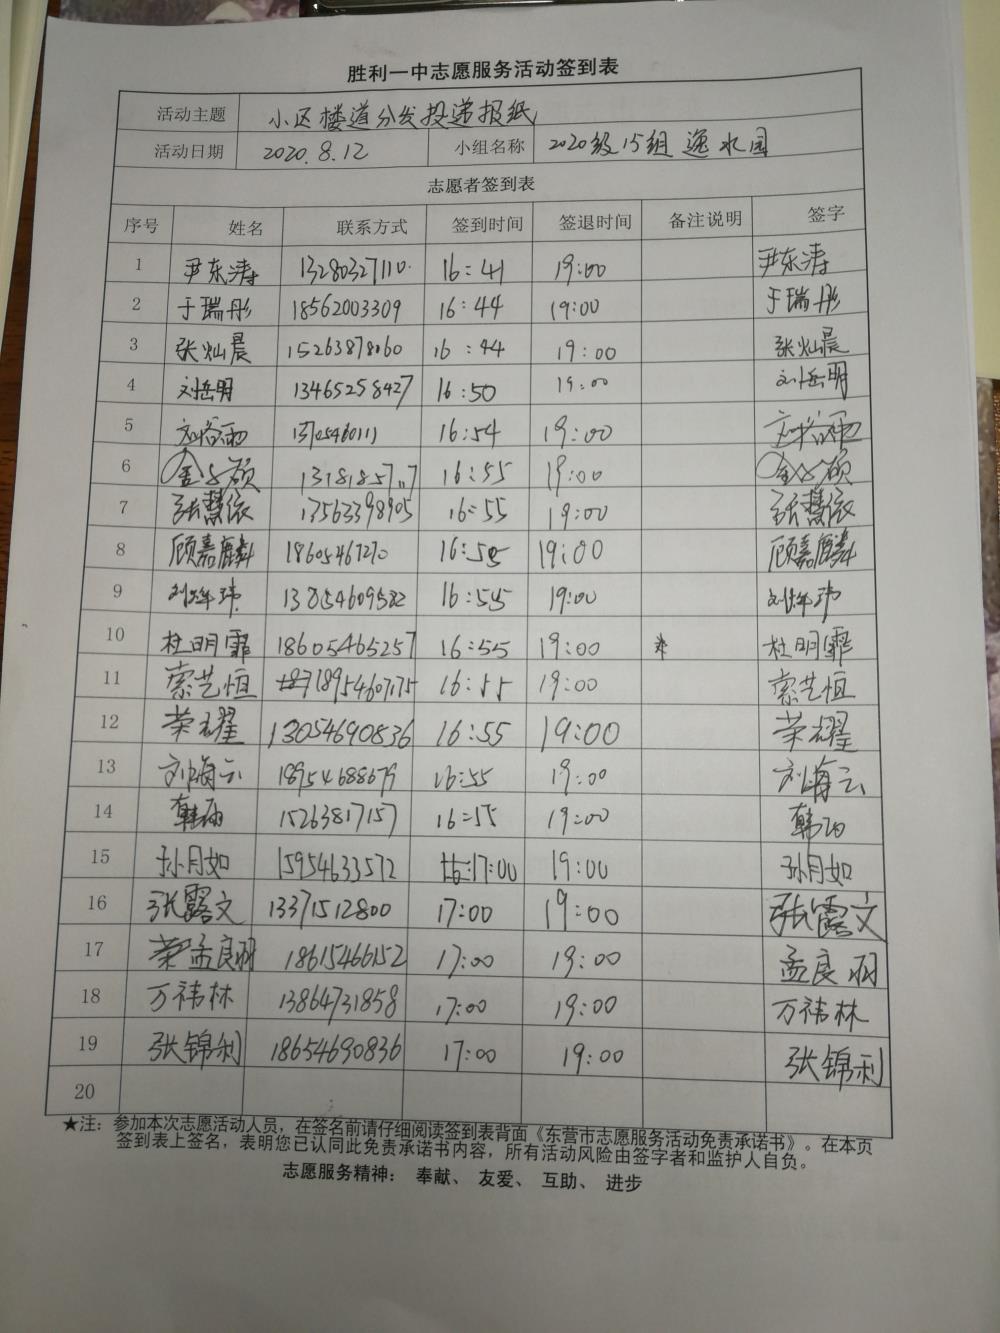 胜利一中志愿服务活动签到表
活动主题 小区楼道分发投递报纸
活动日期 2020.8.12 小组名称 2020级15组 逸水园
志愿者签到表
序号 姓名 联系方式 签到时间 签退时间 备注说明 签字
1 尹东涛 13280327110 16:41 19:00 尹东涛
2 于瑞彤 18562003309 16:44 19:00 于瑞彤
3 张灿晨 15263878060 16:44 19:00 张灿晨
4 刘岳明 13465258427 16:50 19:00 刘岳明
5 刘谷雨 13705460111 16:54 19:00 刘谷雨
6 16:55 19:00
7 张慧依 13563398905 16:55 19:00 张慧依
8 顾嘉麟 18605467270 16:55 19:00 顾嘉麟
9 13854609582 16:55 19:00
10 杜明霏 18605465257 16:55 19:00 杜明霏
11 索艺恒 18954607175 16:55 19:00 索艺恒
12 荣耀 13054690836 16:55 19:00 荣耀
13 刘海云 18954688679 16:55 19:00 刘海云
14 15263817157 16:55 19:00
15 孙月如 15954633572 17:00 19:00 孙月如
16 张露文 13371512800 17:00 19:00 张露文
17 孟良羽 18615466152 17:00 19:00 孟良羽
18 万祎林 13864731858 17:00 19:00 万祎林
19 张锦利 18654690836 17:00 19:00 张锦利
20
★注：参加本次志愿活动人员，在签名前请仔细阅读签到表背面《东营市志愿服务活动免责承诺书》。在本页
签到表上签名，表明您已认同此免责承诺书内容，所有活动风险由签字者和监护人自负。
志愿服务精神： 奉献、 友爱、 互助、 进步